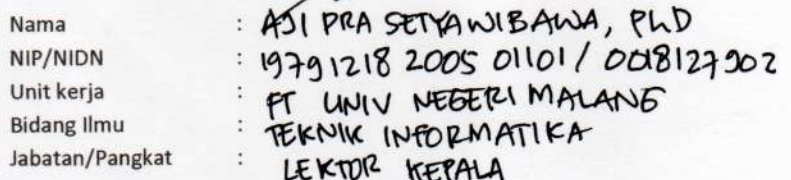 Nama : AJI PRA SETYA WIBAWA, PhD
NIP/NIDN : 19791218 2005 01101 / 0018127902
Unit kerja : FT UNIV NEGERI MALANG
Bidang Ilmu : TEKNIK INFORMATIKA
Jabatan/Pangkat : LEKTOR KEPALA